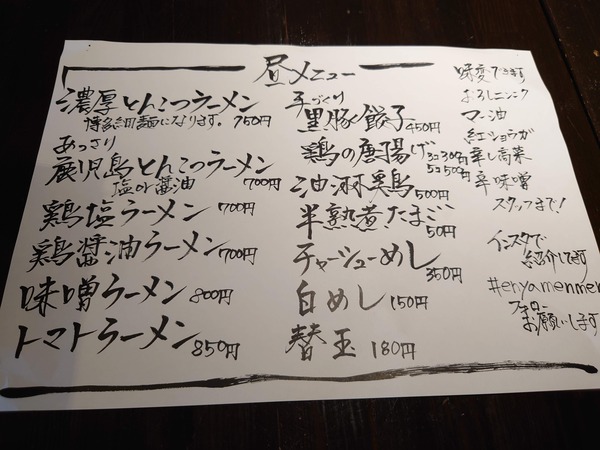 昼メニュー
濃厚とんこつラーメン
博多細麺になります。 750円
あっさり
鹿児島とんこつラーメン
塩or醤油 700円
鶏塩ラーメン 700円
鶏醤油ラーメン 700円
味噌ラーメン 800円
トマトラーメン 850円
手づくり
黒豚餃子 450円
鶏の唐揚げ 3コ300円
5コ500円
油淋鶏 500円
半熟煮たまご 50円
チャーシューめし 350円
白めし 150円
替玉 180円
味変できます
おろしニンニク
マー油
紅ショウガ
辛し高菜
辛味噌
スタッフまで!
インスタで
紹介してます
#eryamenmen
フォロー
お願いします